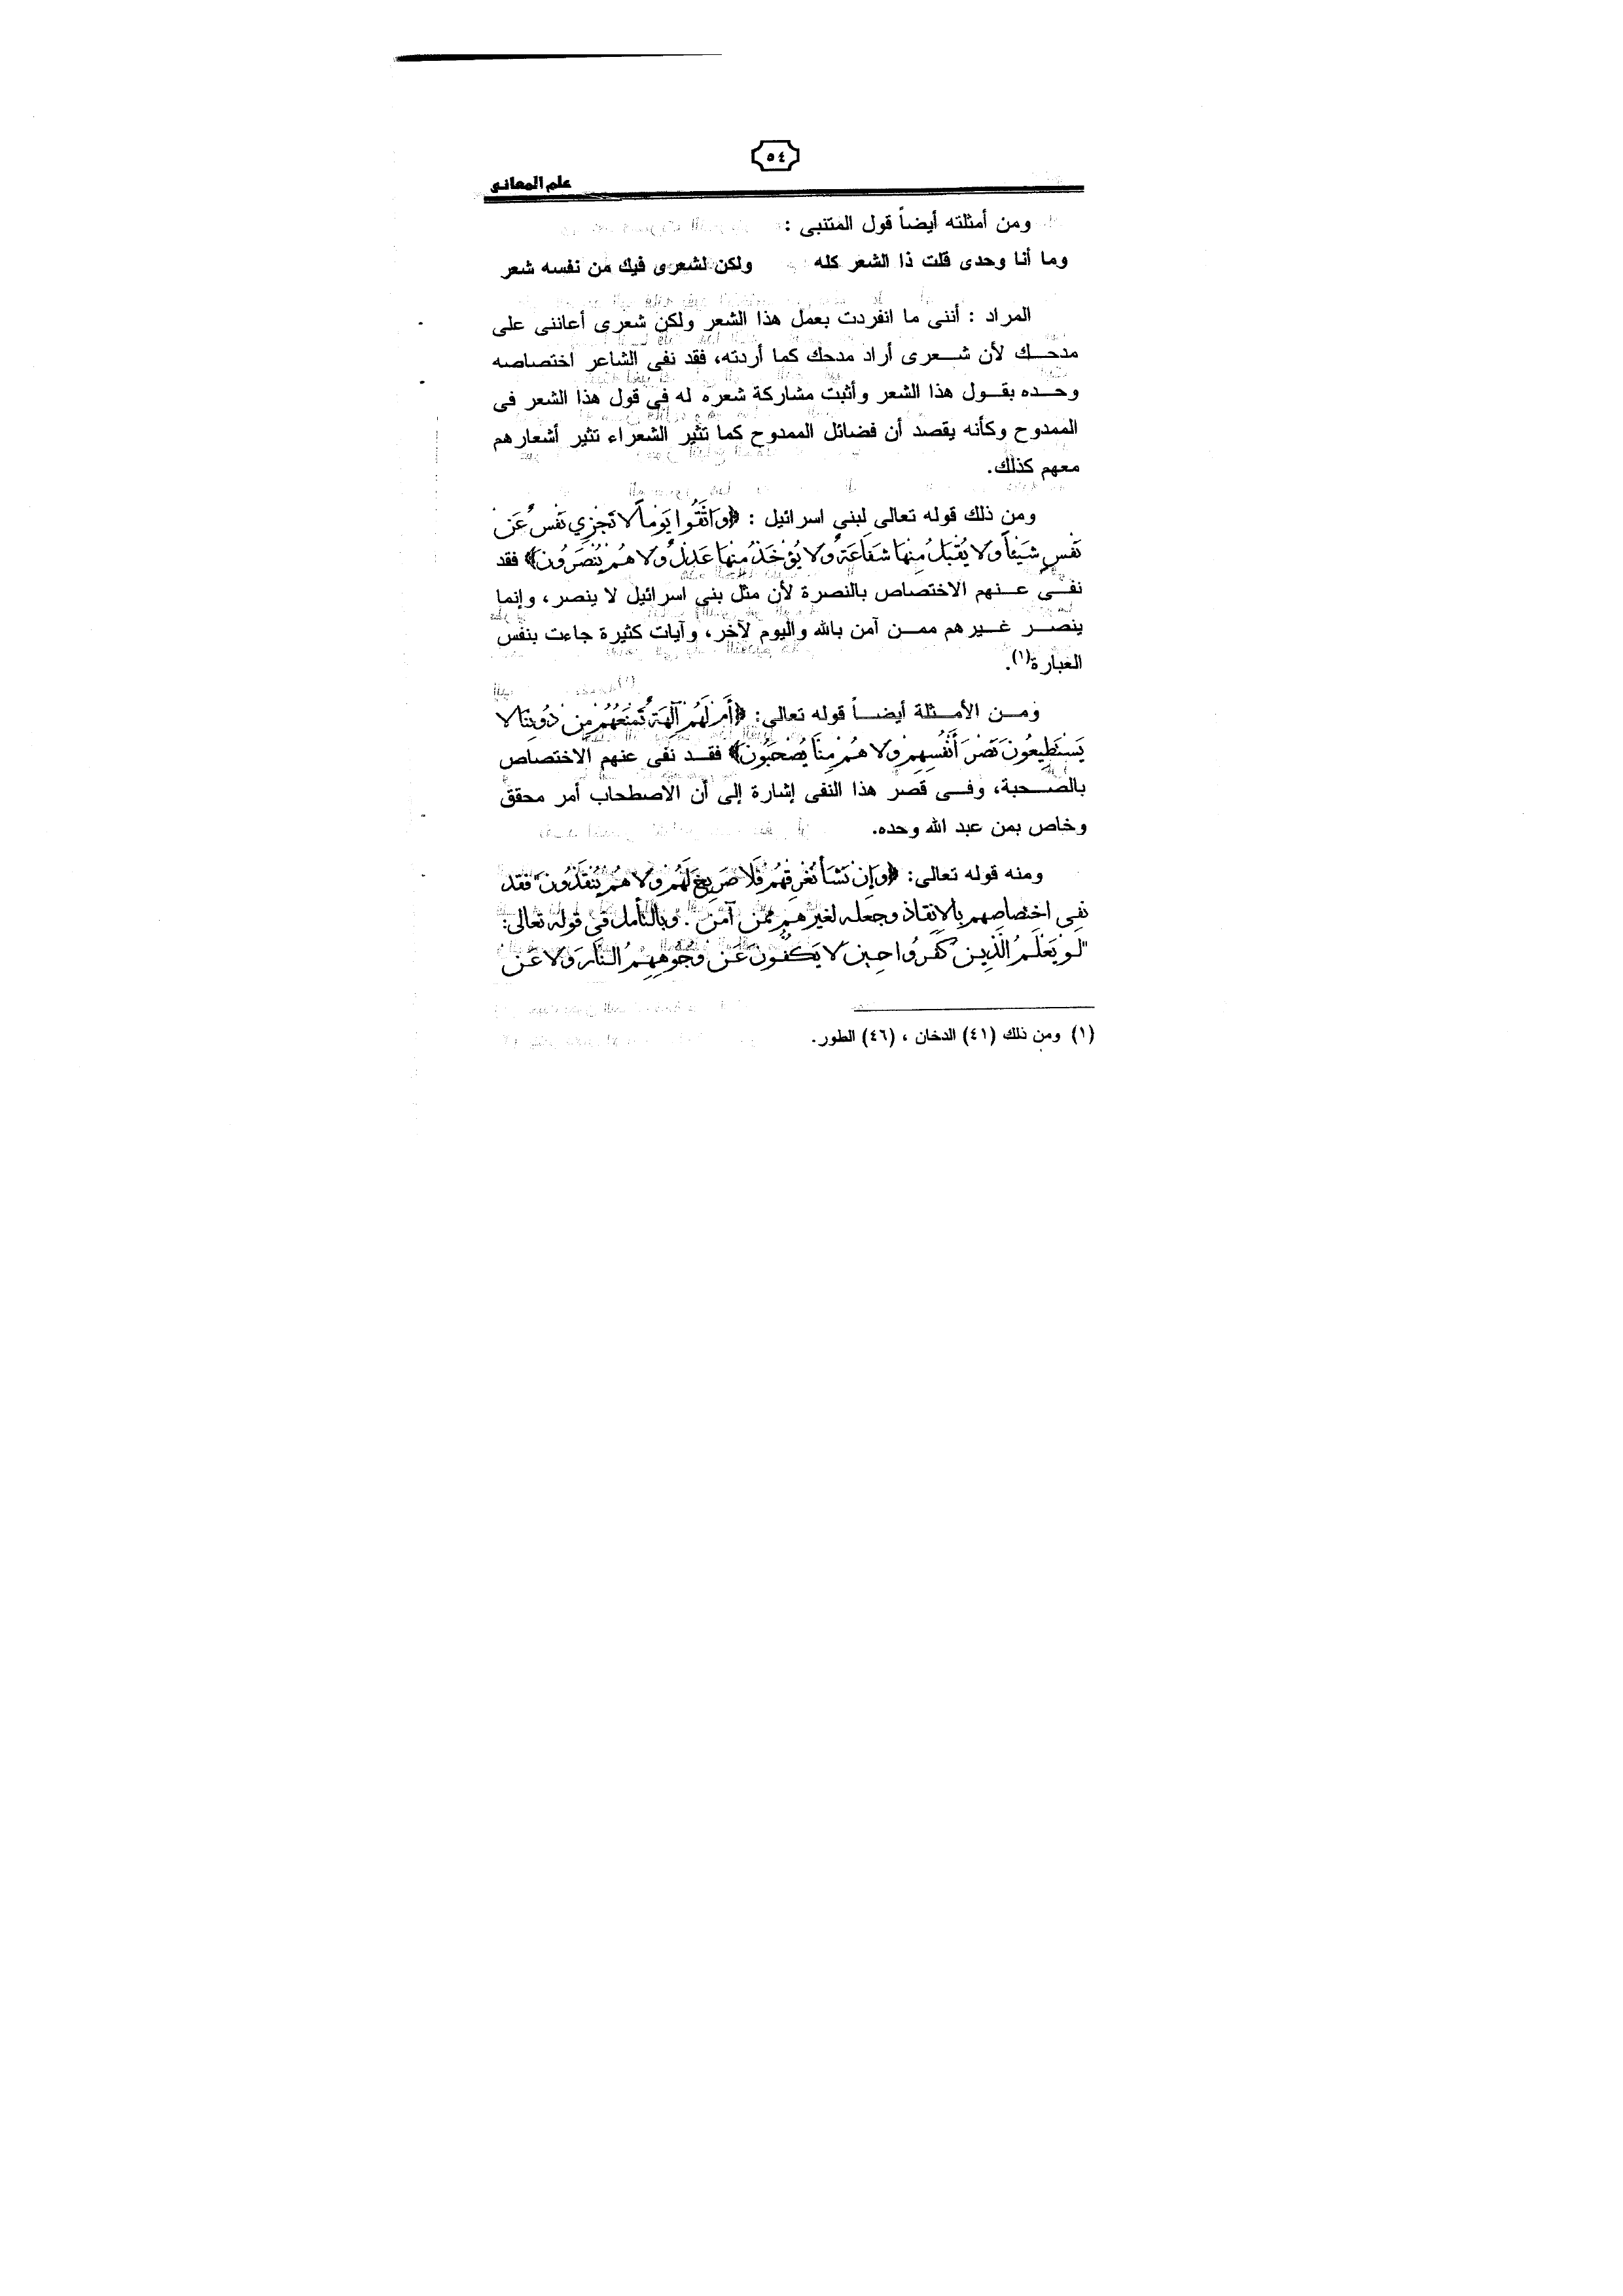 ٥٤
علم المعانى
ومن أمثلته أيضاً قول المتنبى :
وما أنا وحدى قلت ذا الشعر كله ولكن لشعرى فيك من نفسه شعر
المراد : أننى ما انفردت بعمل هذا الشعر ولكن شعرى أعاننى على
مدحك لأن شعرى أراد مدحك كما أردته، فقد نفى الشاعر اختصاصه
وحده بقول هذا الشعر وأثبت مشاركة شعره له فى قول هذا الشعر فى
الممدوح وكأنه يقصد أن فضائل الممدوح كما تثير الشعراء تثير أشعارهم
معهم كذلك.
ومن ذلك قوله تعالى لبنى اسرائيل : ﴿وَاتَّقُوا يَوْماً لا تَجْزِي نَفْسٌ عَنْ
نَفْسٍ شَيْئاً وَلا يُقْبَلُ مِنْهَا شَفَاعَةٌ وَلا يُؤْخَذُ مِنْهَا عَدْلٌ وَلا هُمْ يُنْصَرُونَ﴾ فقد
نفى عنهم الاختصاص بالنصرة لأن مثل بنى اسرائيل لا ينصر، وإنما
ينصر غيرهم ممن آمن بالله واليوم لآخر، وآيات كثيرة جاءت بنفس
العبارة(١).
ومن الأمثلة أيضاً قوله تعالى: ﴿أَمْ لَهُمْ آلِهَةٌ تَمْنَعُهُمْ مِنْ دُونِنَا لا
يَسْتَطِيعُونَ نَصْرَ أَنْفُسِهِمْ وَلا هُمْ مِنَّا يُصْحَبُونَ﴾ فقد نفى عنهم الاختصاص
بالصحبة، وفى قصر هذا النفى إشارة إلى أن الاصطحاب أمر محقق
وخاص بمن عبد الله وحده.
ومنه قوله تعالى: ﴿وَإِنْ نَشَأْ نُغْرِقْهُمْ فَلا صَرِيخَ لَهُمْ وَلا هُمْ يُنْقَذُونَ" فقد
نفى اختصاصهم بالانقاذ وجعله لغيرهم ممن آمن . وبالتأمل فى قوله تعالى:
"لَوْ يَعْلَمُ الَّذِينَ كَفَرُوا حِينَ لا يَكُفُّونَ عَنْ وُجُوهِهِمُ النَّارَ وَلا عَنْ
(١) ومن ذلك (٤١) الدخان ، (٤٦) الطور.